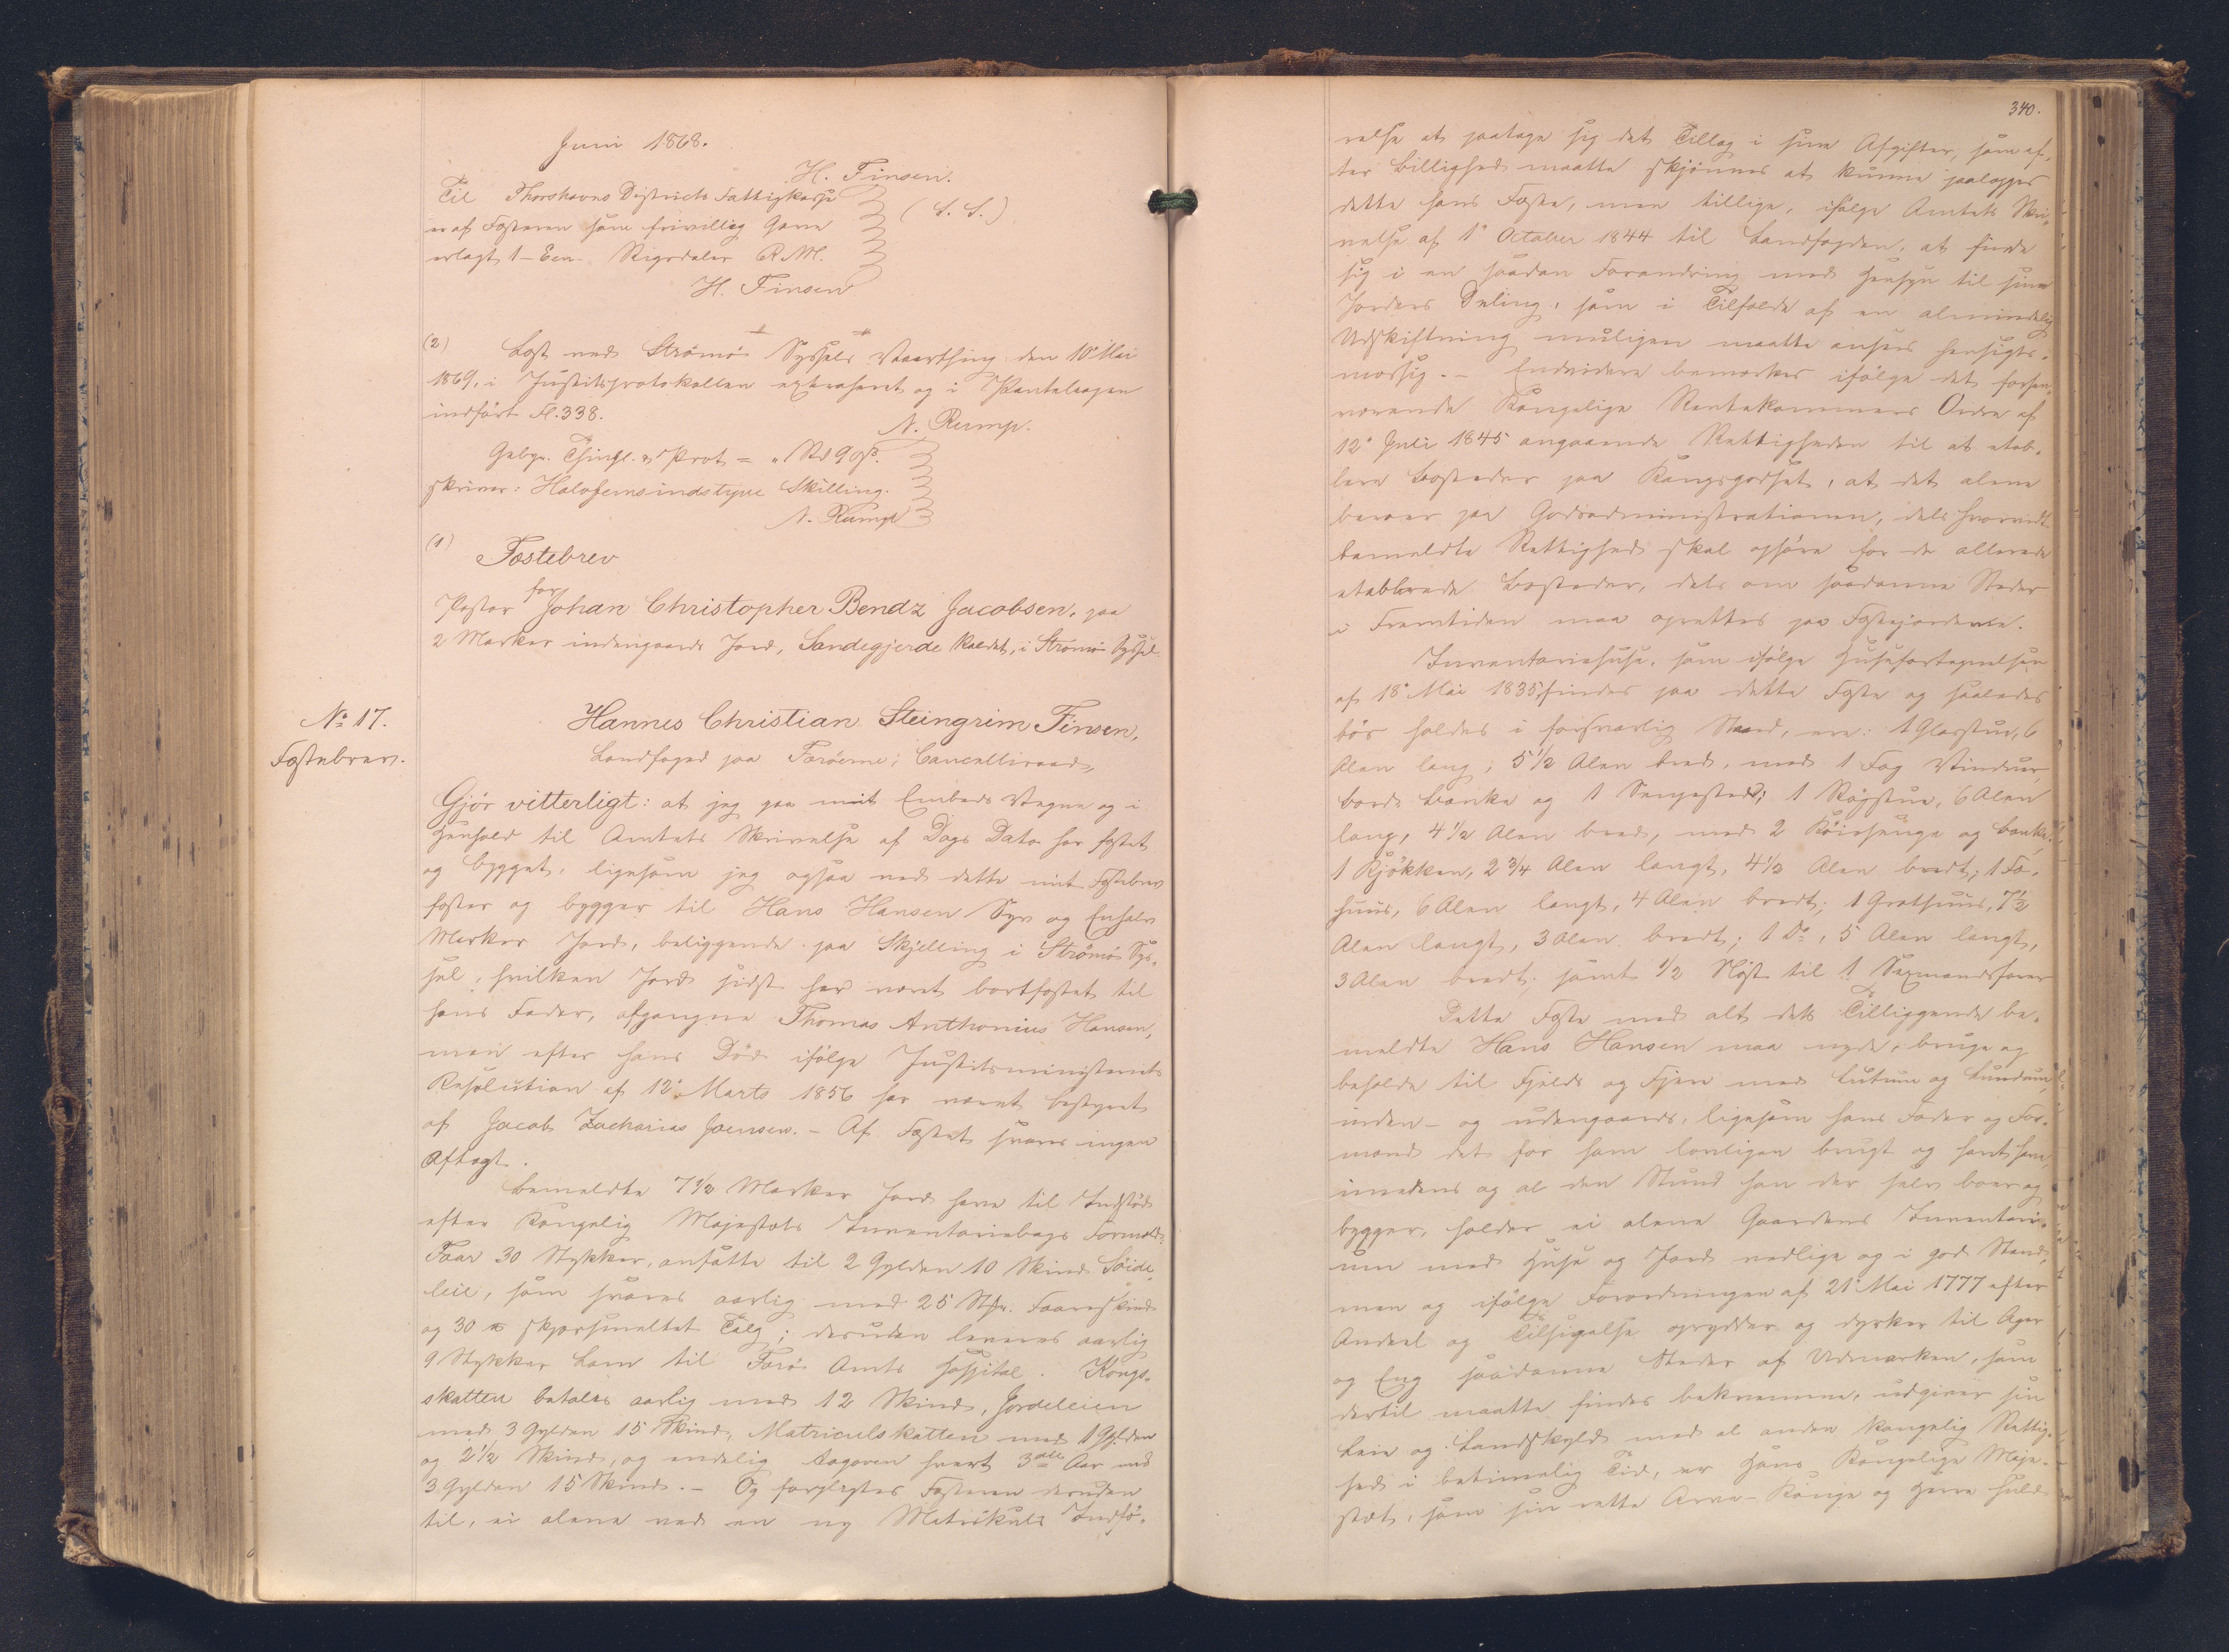 Juni 1868.
H. Finsen.
Til Thorshavns Districts Fattigkasse
er af Fæsteren som frivillig Gave
(L. S.)
erlagt 1 – Een – Rigsdaler R.M.
H. Finsen
(2) Læst ved Strömö Syssels Vaarthing den 10 Mai
1869, i Justitsprotokollen extraheret og i Pantebogen
indført Fl. 338.
N. Rump.
Gebyr. Thingl. & Prot = " Rd 90 s.
skriver: Halvfemsindstyve Skilling.
N. Rump
(1) Fæstebrev
for
Pastor Johan Christopher Bendz Jacobsen, paa
2 Marker indengaards Jord, Sandegjerde kaldet, i Strömö Syssel.
No 17.
Fæstebrev.
Hannes Christian Steingrim Finsen,
Landfoged paa Færöerne, Cancelliraad,
Gjör vitterligt: at jeg paa mit Embeds Vegne og i
Henhold til Amtets Skrivelse af Dags Dato har fæstet
og bygget, ligesom jeg ogsaa ved dette mit Fæstebrev
fæster og bygger til Hans Hansen Syv og Enhalv
Marker Jord, beliggende paa Skjelling i Strömö Sys-
sel, hvilken Jord sidst har været bortfæstet til
hans Fader, afgangne Thomas Anthonius Hansen,
men efter hans Död ifölge Justitsministeriets
Resolution af 12' Marts 1856 har været bestyret
af Jacob Zacharias Joensen. – Af Fæstet svares ingen
Aftægt.
Bemeldte 7 1/2 Marker Jord have til Indstöd
efter Kongelig Majestæts Inventariebogs Formeld
Faar 30 Stykker, ansatte til 2 Gylden 10 Skind Söide-
leie, som svares aarlig med 25 Stkr. Faareskind
og 30 ℔ skjærsmeltet Talg; desuden leveres aarlig
9 Stykker Lam til Færö Amts Hospital. Kongs-
skatten betales aarlig med 12 Skind, Jordeleien
med 3 Gylden 15 Skind, Matriculskatten med 1 Gylden
og 2 1/2 Skind, og endelig Aagaven hvert 3die Aar med
3 Gylden 15 Skind. – Og forpligtes Fæsteren desuden
til, ei alene ved en ny Matrikuls Indfö-
340.
relse at paatage sig det Tillæg i sine Afgifter, som ef-
ter Billighed maatte skjönnes at kunne paalægges
dette hans Fæste, men tillige, ifölge Amtets Skri-
velse af 1' October 1844 til Landfogden, at finde
sig i en saadan Forandring med Hensyn til sine
Jorders Deling, som i Tilfælde af en almindelig
Udskiftning muligen maatte ansees hensigts-
mæssig. – Endvidere bemærkes ifölge det forhen-
værende Kongelige Rentekammers Ordre af
12' Juli 1845 angaaende Rettigheden til at etab-
lere Bosteder paa Kongsgodset, at det alene
beroer paa Godsadministrationen, dels hvorvidt
bemeldte Rettighed skal ophöre for de allerede
etablerede Bosteder, dels om saadanne Steder
i Fremtiden maa oprettes paa Fæstejorderne.
Inventariehuse, som ifölge Husefortegnelsen
af 18' Mai 1835, findes paa dette Fæste og saaledes
bör holdes i forsvarlig Stand, ere: 1 Glasstue, 6
Alen lang, 5 1/2 Alen bred, med 1 Fag Vinduer,
Bord, Bænke og 1 Sengested; 1 Rögstue, 6 Alen
lang, 4 1/2 Alen bred, med 2 Köiesenge og Bænke,
1 Kjökken, 2 3/4 Alen langt, 4 1/2 Alen bredt; 1 Fæ-
huus, 6 Alen langt, 4 Alen bredt; 1 Grothuus, 7 1/2
Alen langt, 3 Alen bredt; 1 Do, 5 Alen langt,
3 Alen bredt, samt 1/2 Nöst til 1 Sexmandsfarer
Dette Fæste med alt dets Tilliggende be-
meldte Hans Hansen maa nyde, bruge og
beholde til Fjelds og Fjære med Lutum og Lundum,
inden- og udengaards, ligesom hans Fader og For-
mænd det för ham lovligen brugt og havt have,
imedens og al den Stund han der selv boer og
bygger, holder ei alene Gaardens Inventari-
um med Huse og Jord vedlige og i god Stand,
men og ifölge Forordningen af 21' Mai 1777 efter
Andeel og Tilsigelse oprydder og dyrker til Ager
og Eng saadanne Steder af Udmarken, som
dertil maatte findes bekvemme, udgiver sin
Leie og Landskyld med al anden Kongelig Rettig-
hed i betimelig Tid, er Hans Kongelige Maje-
stæt, som sin rette Arve-Konge og Herre huld